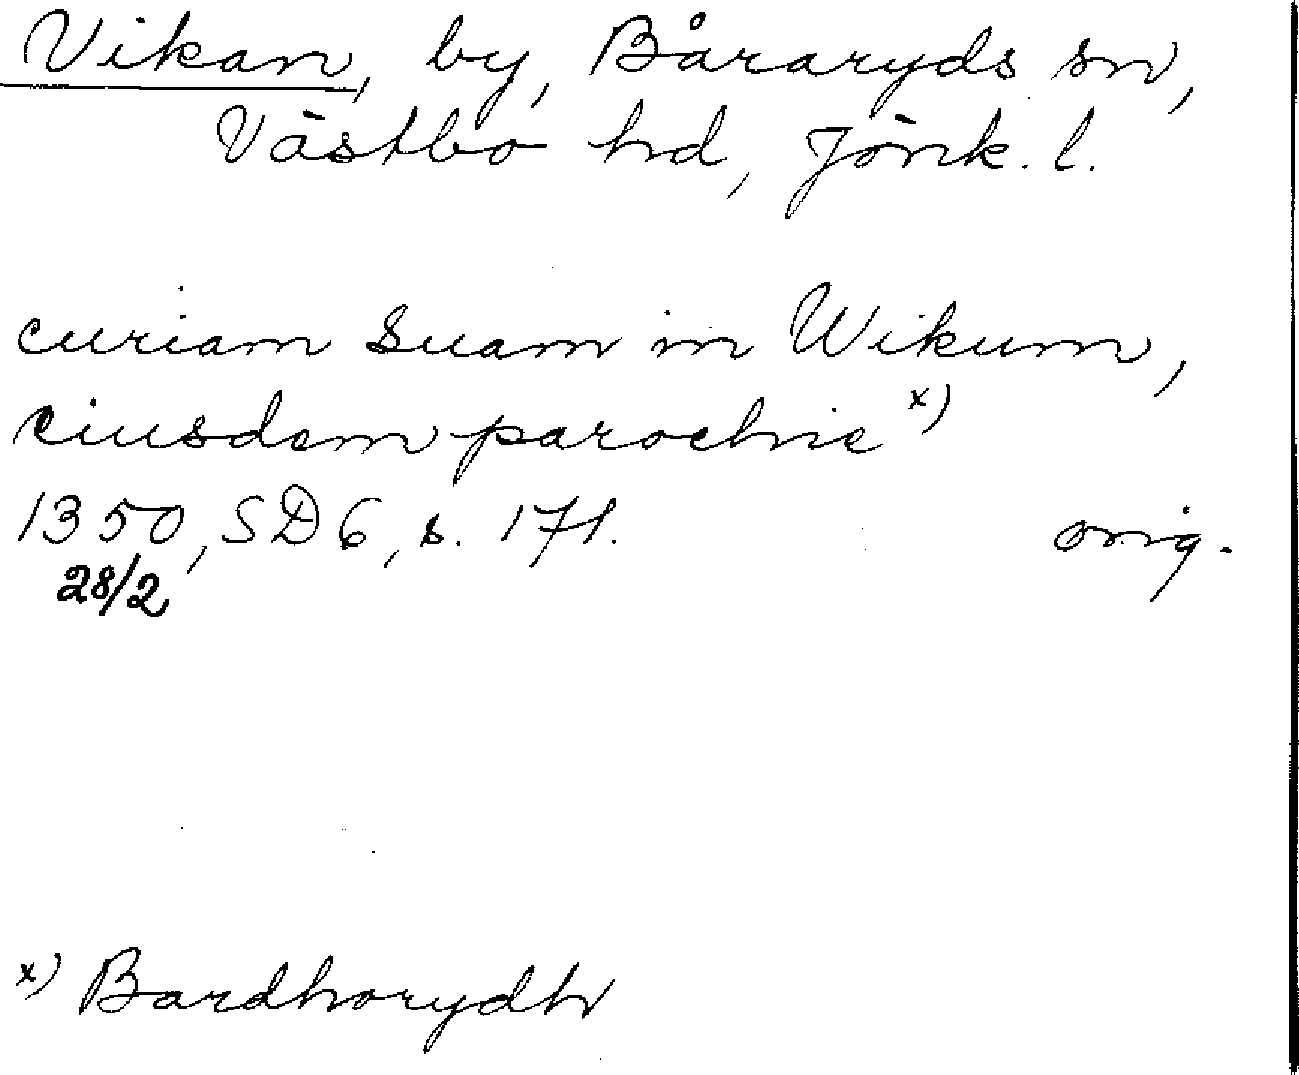 Vikan, by, Båraryds sn,
Västbo hd, Jönk. l.
curiam suam in Wikum,
eiusdem parochie x)
1350, SD6, s. 171. orig.
28/2
x) Bardhorydh